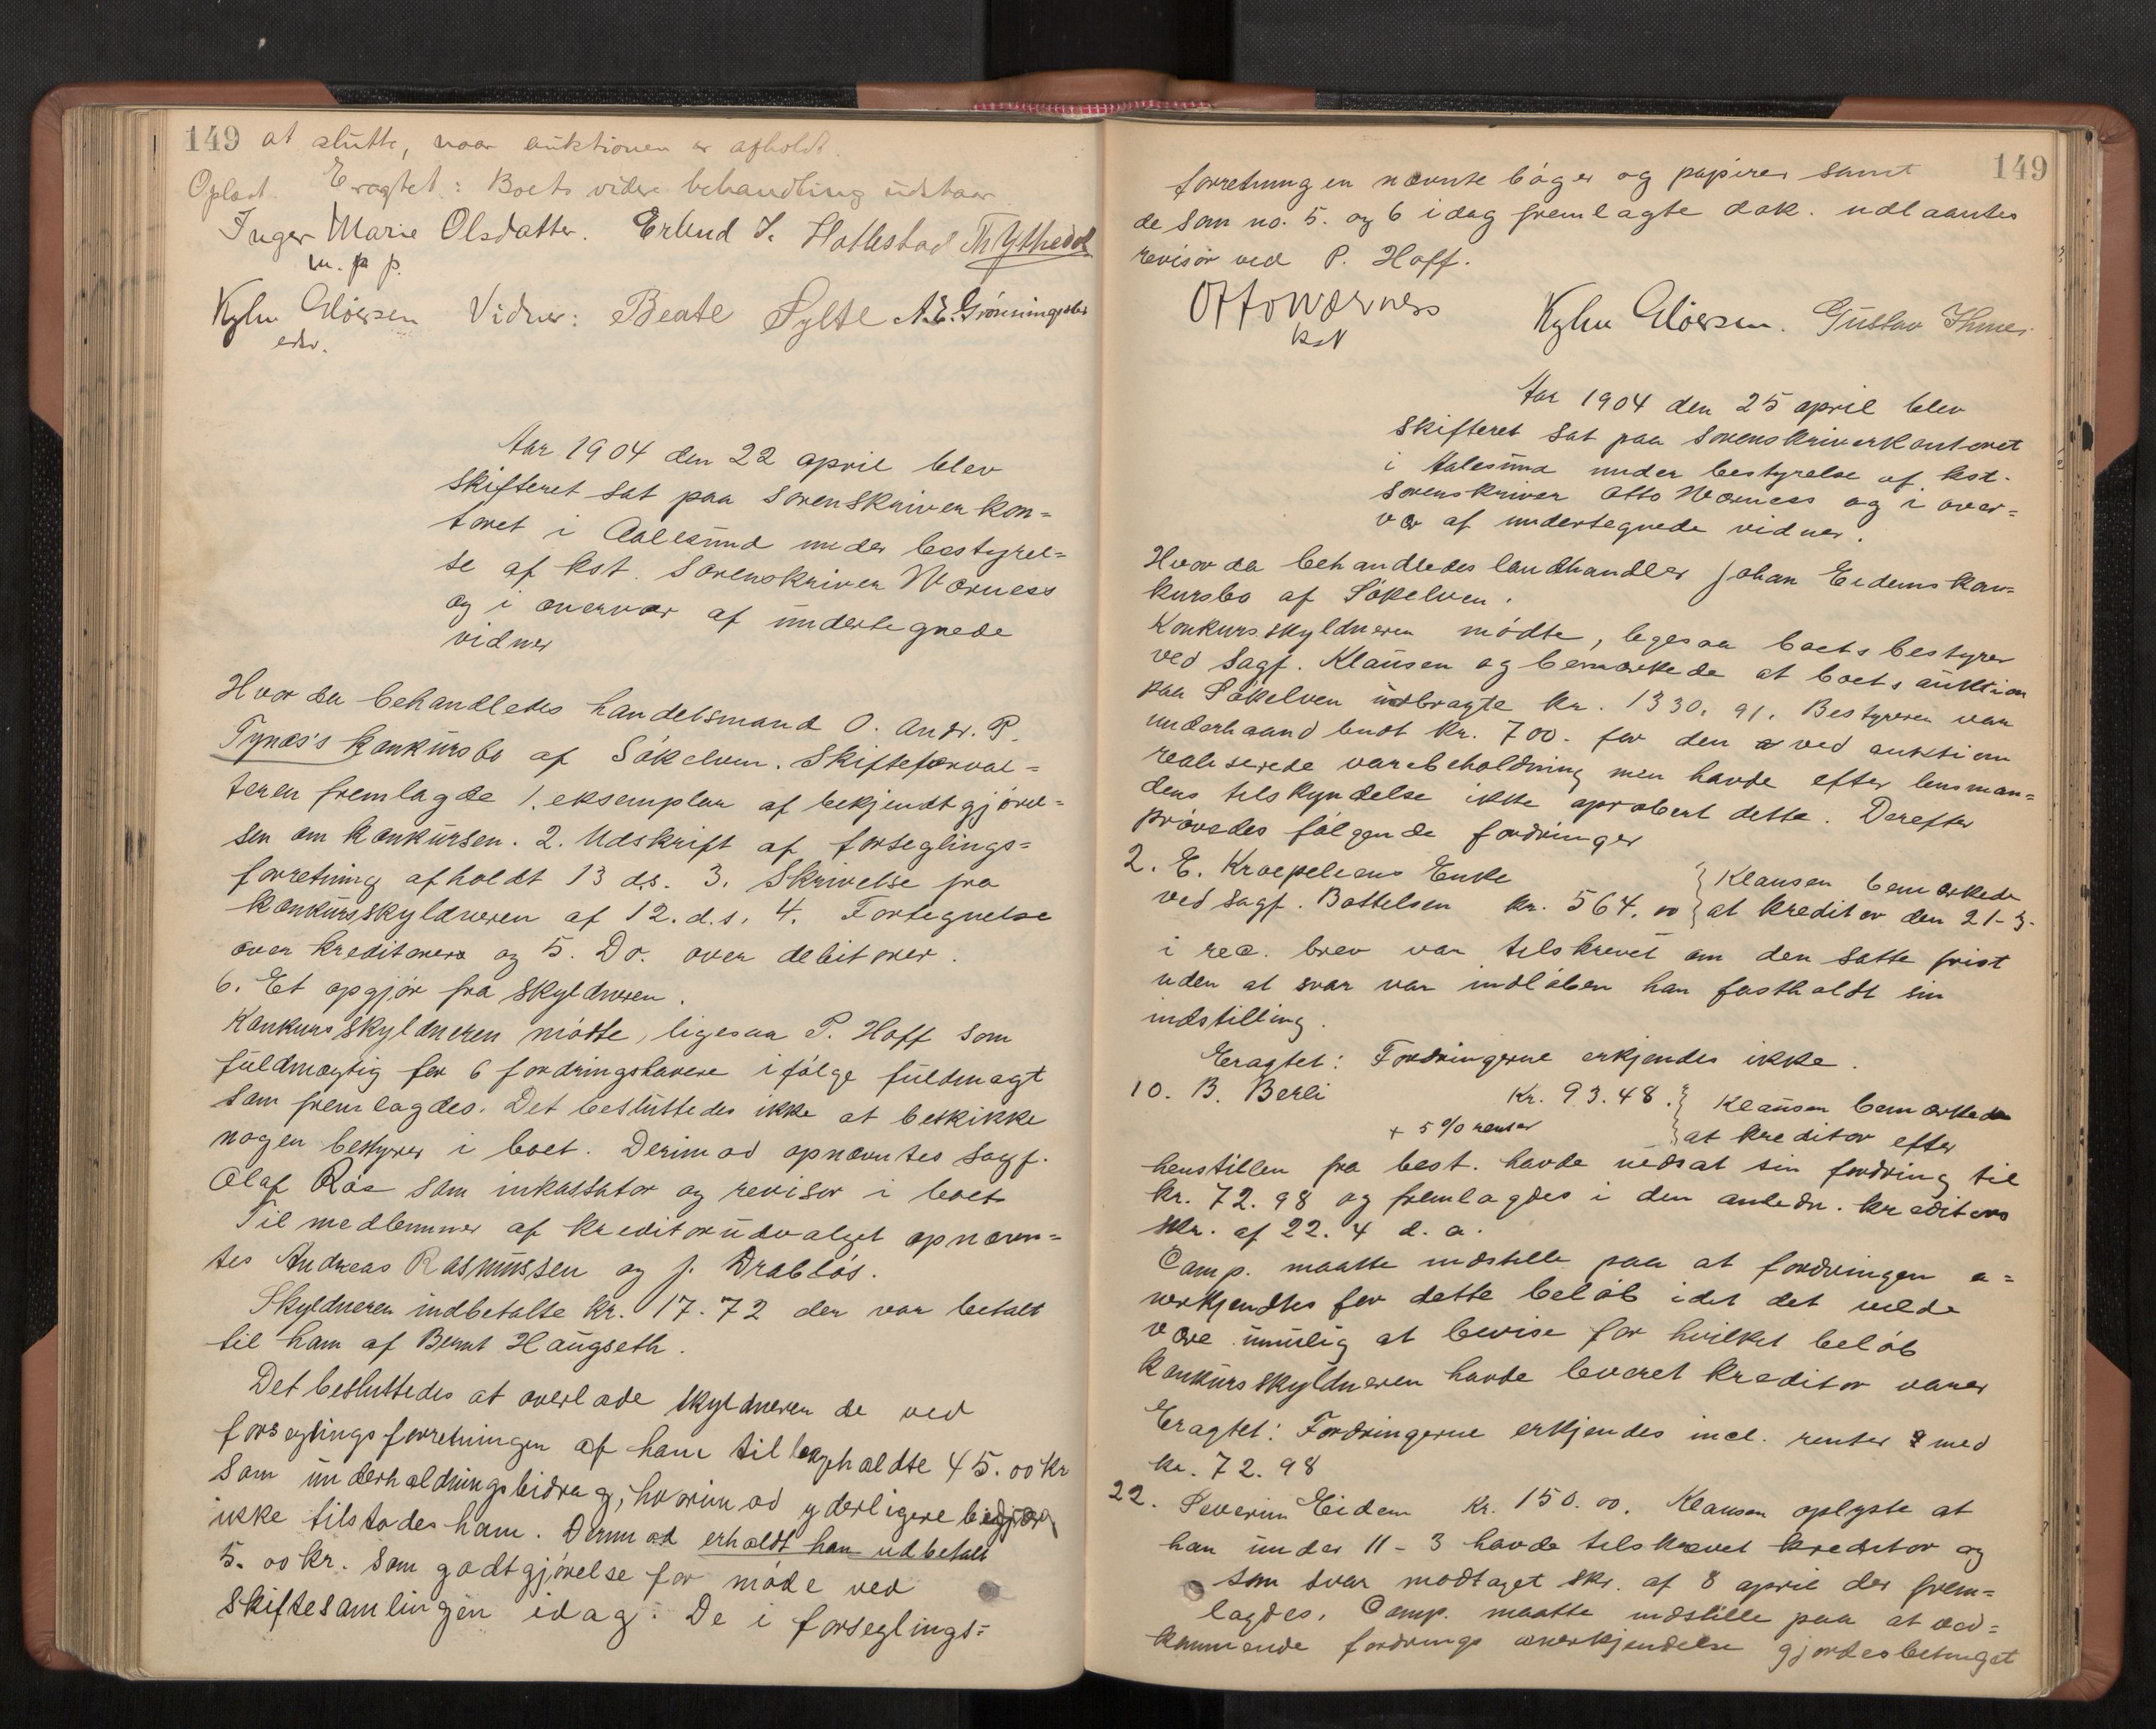 149 at slutte, naar auktionen er afholdt.
Oplæst. Eragtet: Boets videre behandling udstaar
Inger Marie Olsdatter. Erlend J. Hattestad
m. p. p.
Vidner: Beate Sylte
Aar 1904 den 22 april blev
skifteret sat paa sorenskriverkon=
toret i Aalesund under bestyrel=
se af kst. sorenskriver Wærness
og i overvær af undertegnede
vidner
Hvor da behandledes handelsmand O. Andr. P.
Tynæs's konkursbo af Søkelven. Skifteforval=
teren fremlagde 1. eksemplar af bekjendtgjørel=
sen om konkursen. 2. Udskrift af forseglings=
forretning afholdt 13 ds. 3. Skrivelse fra
konkursskyldneren af 12. d.s. 4. Fortegnelse
over kreditorer og 5. Do. over debitorer.
6. Et opgjør fra skyldneren.
Konkursskyldneren mødte, ligesaa P. Hoff som
fuldmægtig for 6 fordringshavere ifølge fuldmagt
som fremlagdes. Det besluttedes ikke at beskikke
nogen bestyrer i boet. Derimod opnævntes sagf.
Olaf Røe som inkassator og revisor i boet
Til medlemmer af kreditorudvalget opnævn=
tes Andreas Rasmussen og J. Drabløs.
Skyldneren indbetalte kr. 17.72 der var betalt
til ham af Bernt Haugseth.
Det besluttedes at overlade skyldneren de ved
forseglingsforretningen af ham tilbageholdte 45.00 kr
som underholdningsbidrag, hvorimod yderligere
ikke tilstodes ham. Derimod erholdt han udbetalt
5.00 kr. som godtgjørelse for møde ved
skiftesamlingen idag. De i forseglings=
149
forretningen nævnte bøger og papirer samt
de som no. 5. og 6 idag fremlagte dok. udlaantes
revisor ved P. Hoff.
Otto Wærness
kst
Aar 1904 den 25 april blev
skifteret sat paa sorenskriverkontoret
i Aalesund under bestyrelse af kst.
sorenskriver Otto Wærness og i over=
vær af undertegnede vidner.
Hvor da behandledes landhandler Johan Eidems kon=
kursbo af Søkelven.
Konkursskyldneren mødte, ligesaa boets bestyrer
ved sagf. Klausen og bemærkede at boets auktion
paa Søkelven indbragte kr. 1330.91. Bestyreren var
underhaand budt kr. 700. for den ved auktion
realiserede varebeholdning men havde efter lensman=
dens tilskyndelse ikke aprobert dette. Derefter
prøvedes følgende fordringer
2. E. Kraepeliens Enke } Klausen bemærkede
ved sagf. Bottelsen kr. 564.00 } at kreditor den 21-3-
i rec. brev var tilskrevet om den satte frist
uden at svar var indløben han fastholdt sin
indstilling.
Eragtet: Fordringerne erkjendes ikke.
10. B. Berli kr. 93.48. } Klausen bemærkede
+ 5 % renter } at kreditor efter
henstillen fra best. havde nedsat sin fordring til
kr. 72.98 og fremlagdes i den anledn. kreditors
skr. af 22.4 d. a.
Comp. maatte indstille paa at fordringen a=
nerkjendtes for dette beløb idet det vilde
være umulig at bevise for hvilket beløb
konkursskyldneren havde leveret kreditor varer
Eragtet: Fordringerne erkjendes incl. renter med
kr. 72.98
22. Severin Eidem kr. 150.00. Klausen oplyste at
han under 11-3 havde tilskrevet kreditor og
som svar modtaget skr. af 8 april der frem=
lagdes. Comp. maatte indstille paa at ved=
kommende fordrings anerkjendelse gjordes betinget